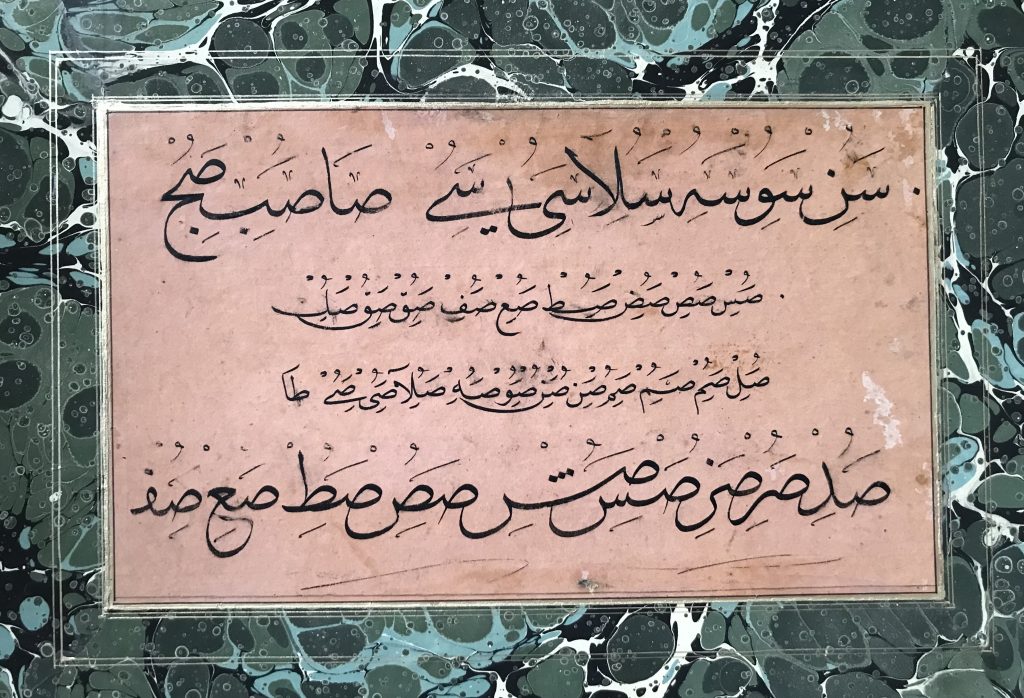 سن سو سه سلا سى سے صا صب صح
صس صص صط صع صف صق
صل صم صم صم صن صن صو صه صلا صى صے طا
صد صر صر صس صص صط صع صف